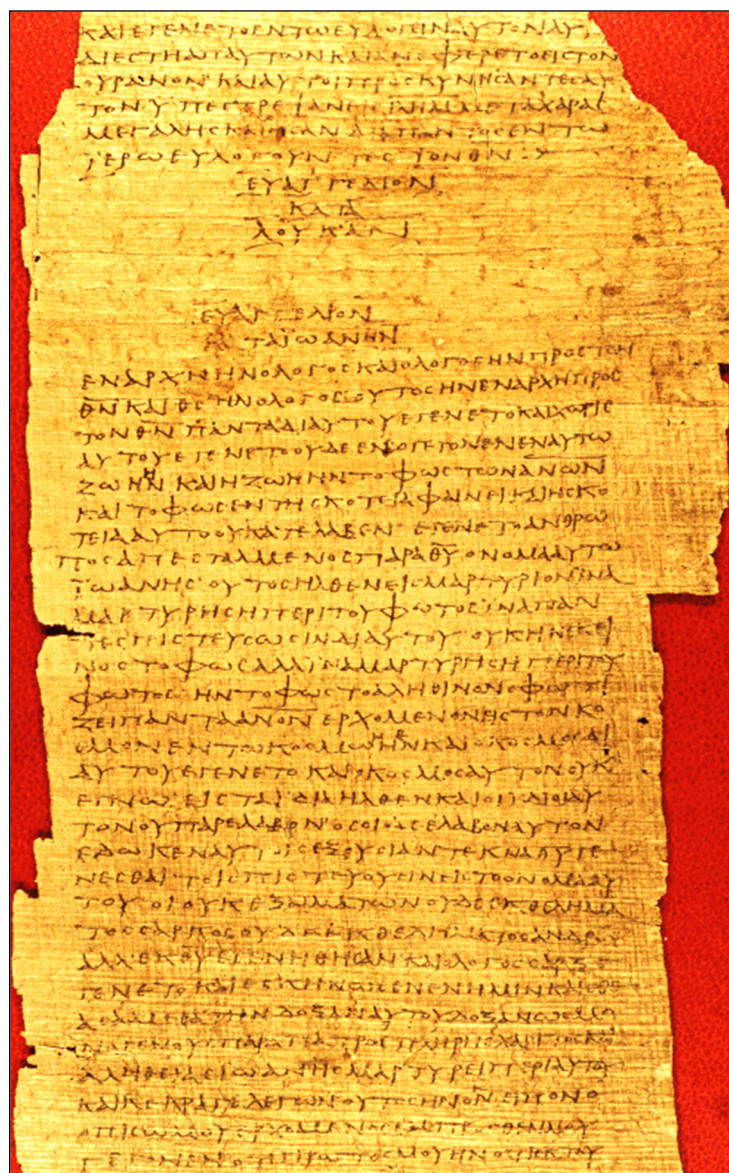 ΚΑΙΕΓΕΝΕΤΟΕΝΤΩΕΥΛΟΓΕΙΝΑΥΤΟΝΑΥ
ΔΙΕϹΤΗΑΠΑΥΤΩΝΚΑΙΑΝΕΦΕΡΕΤΟΕΙϹΤΟΝ
ΟΥΡΑΝΟΝ ΚΑΙΑΥΤΟΙΠΡΟϹΚΥΝΗϹΑΝΤΕϹΑΥ
ΤΟΝΥΠΕϹΤΡΕΨΑΝΕΙϹΙΗΛΗΜΜΕΤΑΧΑΡΑϹ
ΜΕΓΑΛΗϹΚΑΙΗϹΑΝΔΙΑΠΑΝΤΟϹΕΝΤΩ
ΙΕΡΩΕΥΛΟΓΟΥΝΤΕϹΤΟΝΘ̅Ν̅
ΕΥΑΓΓΕΛΙΟΝ
ΚΑΤΑ
ΛΟΥΚΑΝ
ΕΥΑΓΓΕΛΙΟΝ
ΚΑΤΑΙΩΑΝΗΝ
ΕΝΑΡΧΗΗΝΟΛΟΓΟϹΚΑΙΟΛΟΓΟϹΗΝΠΡΟϹΤΟΝ
Θ̅Ν̅ΚΑΙΘ̅Ϲ̅ΗΝΟΛΟΓΟϹ ΟΥΤΟϹΗΝΕΝΑΡΧΗΠΡΟϹ
ΤΟΝΘ̅Ν̅ΠΑΝΤΑΔΙΑΥΤΟΥΕΓΕΝΕΤΟΚΑΙΧΩΡΙϹ
ΑΥΤΟΥΕΓΕΝΕΤΟΟΥΔΕΕΝ ΟΓΕΓΟΝΕΝΕΝΑΥΤΩ
ΖΩΗΗΝΚΑΙΗΖΩΗΗΝΤΟΦΩϹΤΩΝΑ̅Ν̅Ω̅Ν̅
ΚΑΙΤΟΦΩϹΕΝΤΗϹΚΟΤΕΙΑΦΑΙΝΕΙΚΑΙΗϹΚΟ
ΤΕΙΑΑΥΤΟΟΥΚΑΤΕΛΑΒΕΝ ΕΓΕΝΕΤΟΑΝΘΡΩ
ΠΟϹΑΠΕϹΤΑΛΜΕΝΟϹΠΑΡΑΘ̅Υ̅ΟΝΟΜΑΑΥΤΩ
ΙΩΑΝΗϹ ΟΥΤΟϹΗΛΘΕΝΕΙϹΜΑΡΤΥΡΙΟΝΙΝΑ
ΜΑΡΤΥΡΗϹΗΠΕΡΙΤΟΥΦΩΤΟϹΙΝΑΠΑΝ
ΤΕϹΠΙϹΤΕΥϹΩϹΙΝΔΙΑΥΤΟΥ ΟΥΚΗΝΕΚΕΙ
ΝΟϹΤΟΦΩϹΑΛΛΙΝΑΜΑΡΤΥΡΗϹΗΠΕΡΙΤΟΥ
ΦΩΤΟϹ ΗΝΤΟΦΩϹΤΟΑΛΗΘΙΝΟΝΟΦΩΤΙ
ΖΕΙΠΑΝΤΑΑ̅Ν̅Ο̅Ν̅ΕΡΧΟΜΕΝΟΝΕΙϹΤΟΝΚΟ
ϹΜΟΝΕΝΤΩΚΟϹΜΩΗΝΚΑΙΟΚΟϹΜΟϹΔΙ
ΑΥΤΟΥΕΓΕΝΕΤΟΚΑΙΟΚΟϹΜΟϹΑΥΤΟΝΟΥΚ
ΕΓΝΩ ΕΙϹΤΑΙΔΙΑΗΛΘΕΝΚΑΙΟΙΙΔΙΟΙΑΥ
ΤΟΝΟΥΠΑΡΕΛΑΒΟΝ ΟϹΟΙΔΕΕΛΑΒΟΝΑΥΤΟΝ
ΕΔΩΚΕΝΑΥΤΟΙϹΕΞΟΥϹΙΑΝΤΕΚΝΑΘ̅Υ̅ΓΕ
ΝΕϹΘΑΙΤΟΙϹΠΙϹΤΕΥΟΥϹΙΝΕΙϹΤΟΟΝΟΜΑΑΥ
ΤΟΥΟΙΟΥΚΕΞΑΙΜΑΤΩΝΟΥΔΕΕΚΘΕΛΗΜΑ
ΤΟϹϹΑΡΚΟϹΟΥΔΕΕΚΘΕΛΗΜΑΤΟϹΑΝΔΡΟϹ
ΑΛΛΕΚΘ̅Υ̅ΕΓΕΝΝΗΘΗϹΑΝΚΑΙΟΛΟΓΟϹϹΑΡΞΕ
ΓΕΝΕΤΟΚΑΙΕϹΚΗΝΩϹΕΝΕΝΗΜΙΝΚΑΙΕΘΕ
ΑϹΑΜΕΘΑΤΗΝΔΟΞΑΝΑΥΤΟΥΔΟΞΑΝΩϹΜΟ
ΝΟΓΕΝΟΥϹΠΑΡΑΠΑΤΡΟϹΠΛΗΡΗϹΧΑΡΙΤΟϹΚΑΙ
ΑΛΗΘΕΙΑϹΙΩΑΝΗϹΜΑΡΤΥΡΕΙΠΕΡΙΑΥΤΟΥ
ΚΑΙΚΕΚΡΑΓΕΛΕΓΩΝΟΥΤΟϹΗΝΟΝΕΙΠΟΝΟ
ΟΠΙϹΩΜΟΥΕΡΧΟΜΕΝΟϹΕΜΠΡΟϹΘΕΝΜΟΥ
ΓΕΓΟΝΕΝΟΤΙΠΡΩΤΟϹΜΟΥΗΝ